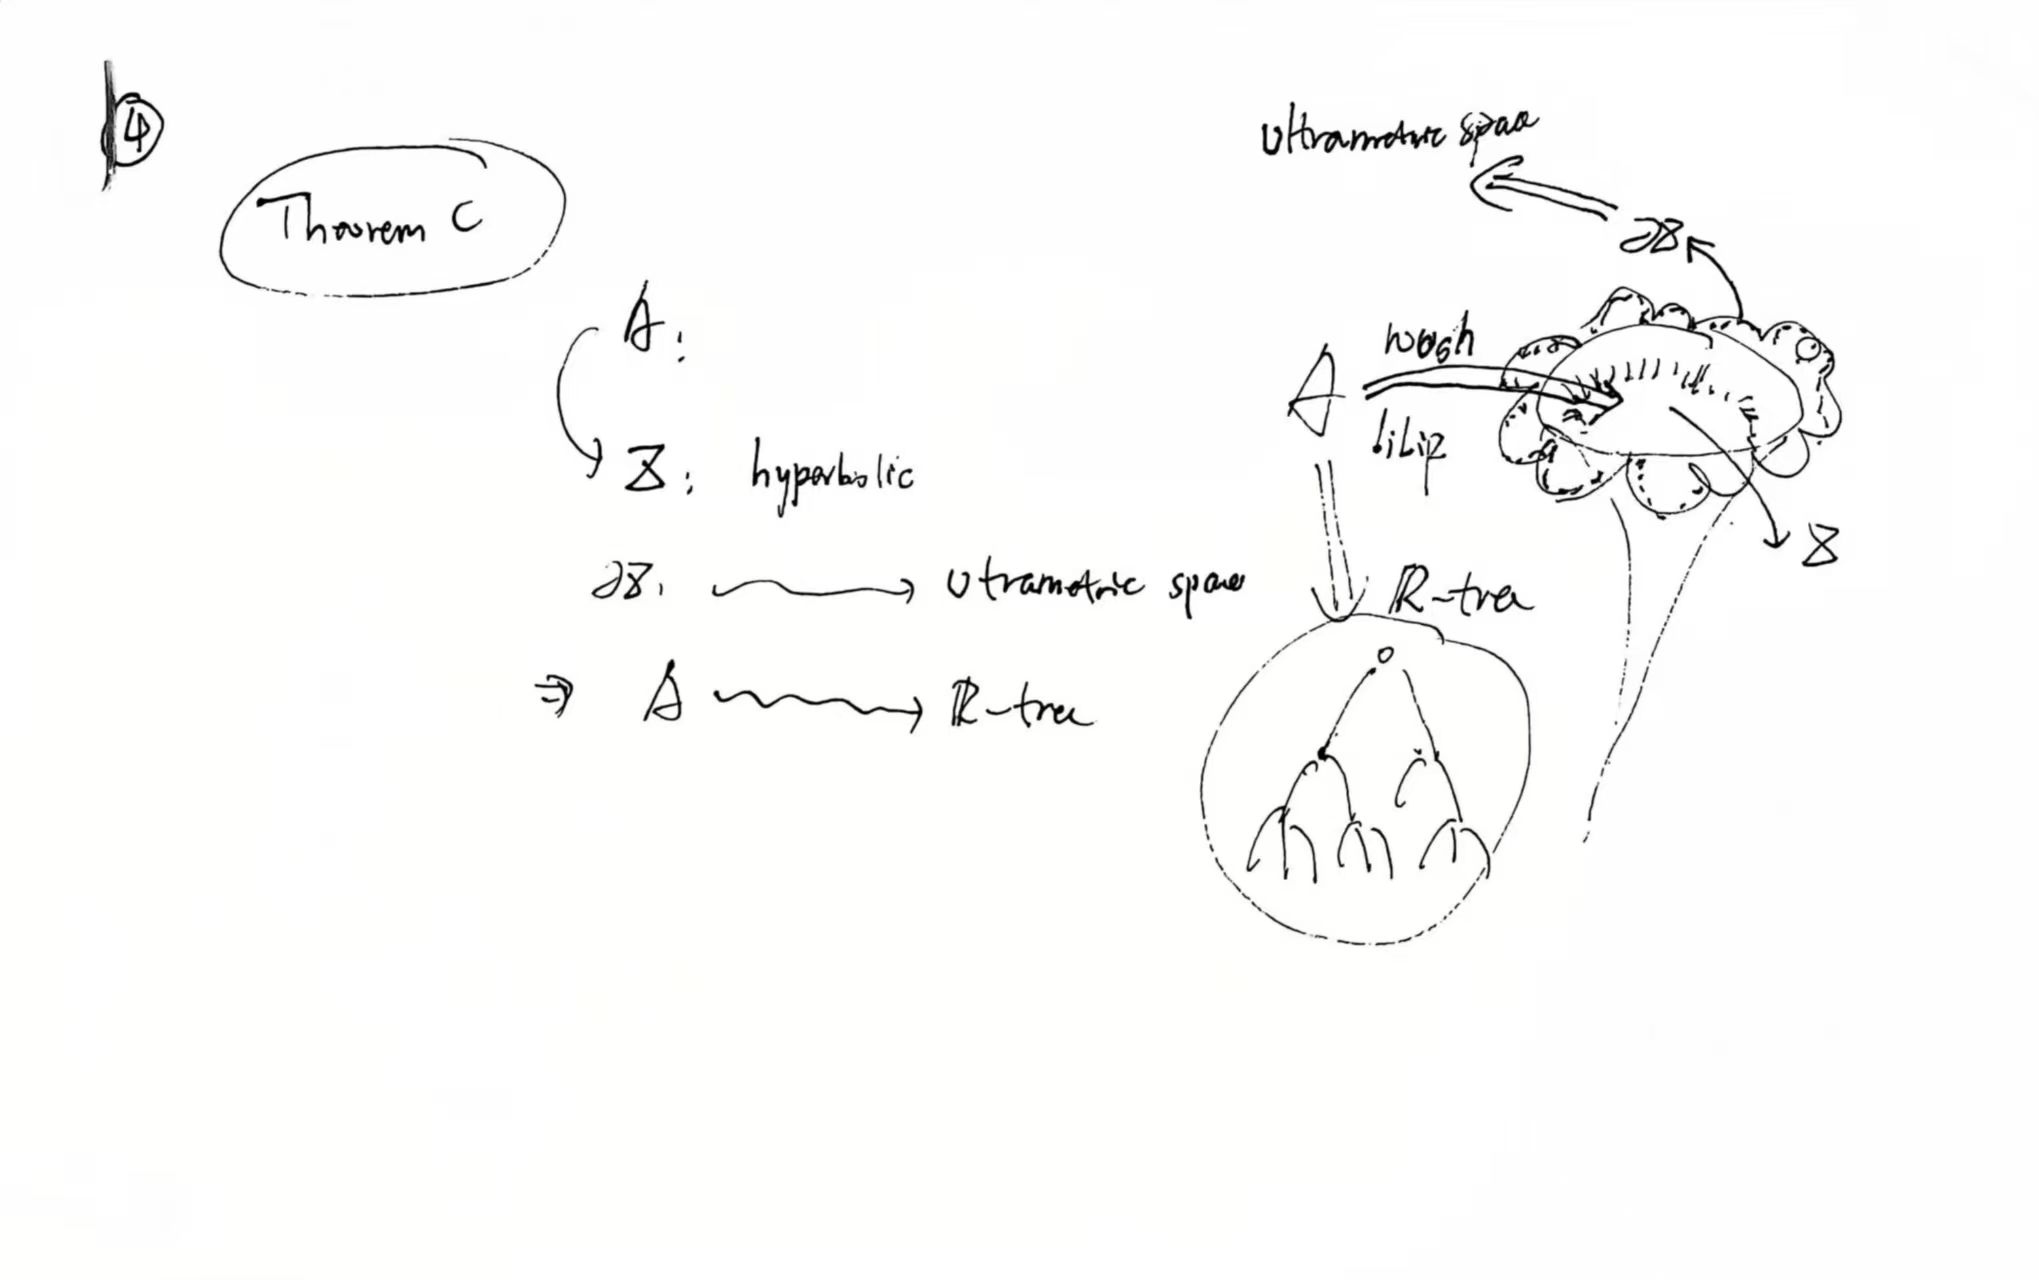 ④
Theorem C
A:
Z: hyperbolic
∂Z: → Utrametric space
⇒ A → ℝ-tree
Ultrametric space
∂Z
A
biLip
Z
ℝ-tree